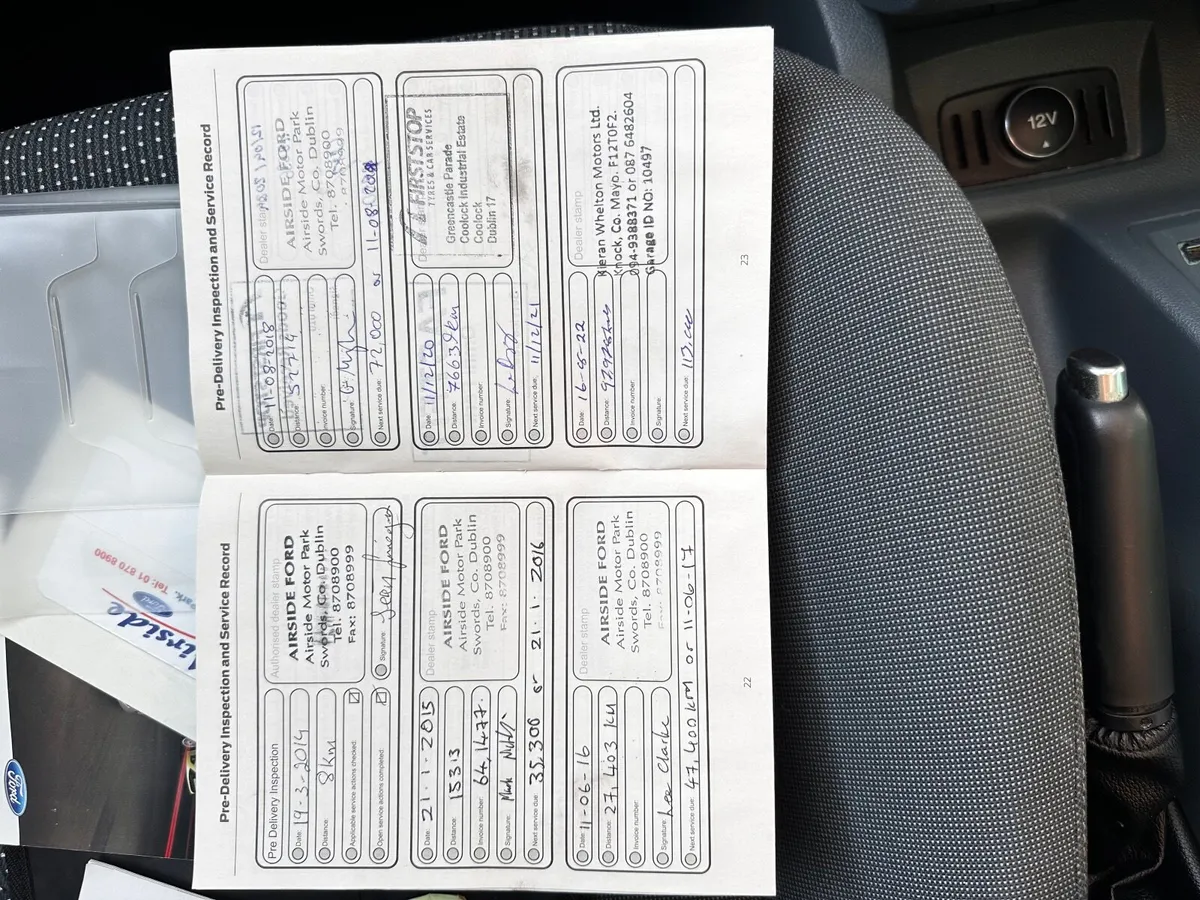 Pre-Delivery Inspection and Service Record
Pre Delivery Inspection
Date: 19-3-2014
Distance: 8km
Applicable service actions checked:
Open service actions completed:
Authorised dealer stamp
AIRSIDE FORD
Airside Motor Park
Swords, Co. Dublin
Tel: 8708900
Fax: 8708999
Signature:
Date: 21.1.2015
Distance: 15313
Invoice number: 64,1477.
Signature: Mark
Next service due: 35,300 or 21.1.2016
Dealer stamp
AIRSIDE FORD
Airside Motor Park
Swords, Co. Dublin
Tel: 8708900
Fax: 8708999
Date: 11-06-16
Distance: 27,403 KM
Invoice number:
Signature: Clarke
Next service due: 47,400KM or 11-06-17
Dealer stamp
AIRSIDE FORD
Airside Motor Park
Swords, Co. Dublin
Tel: 8708900
Fax: 8708999
22
Pre-Delivery Inspection and Service Record
Date: 11-08-2018
Distance:
Invoice number:
Signature:
Next service due: 72,000 or 11-08-
Dealer stamp
AIRSIDE FORD
Airside Motor Park
Swords, Co. Dublin
Tel: 8708900
Date: 11/12/20
Distance: 76639km
Invoice number:
Signature:
Next service due: 11/12/21
FIRST STOP
TYRES & CAR SERVICES
Greencastle Parade
Coolock Industrial Estate
Coolock
Dublin 17
Date: 16-8-22
Distance:
Invoice number:
Signature:
Next service due:
Dealer stamp
Kieran Whelton Motors Ltd.
Knock, Co. Mayo. F12T0F2.
094-9388371 or 087 6482604
Garage ID NO: 10497
23
12V
Airside
Ford
Tel: 01 870 8900
Ford